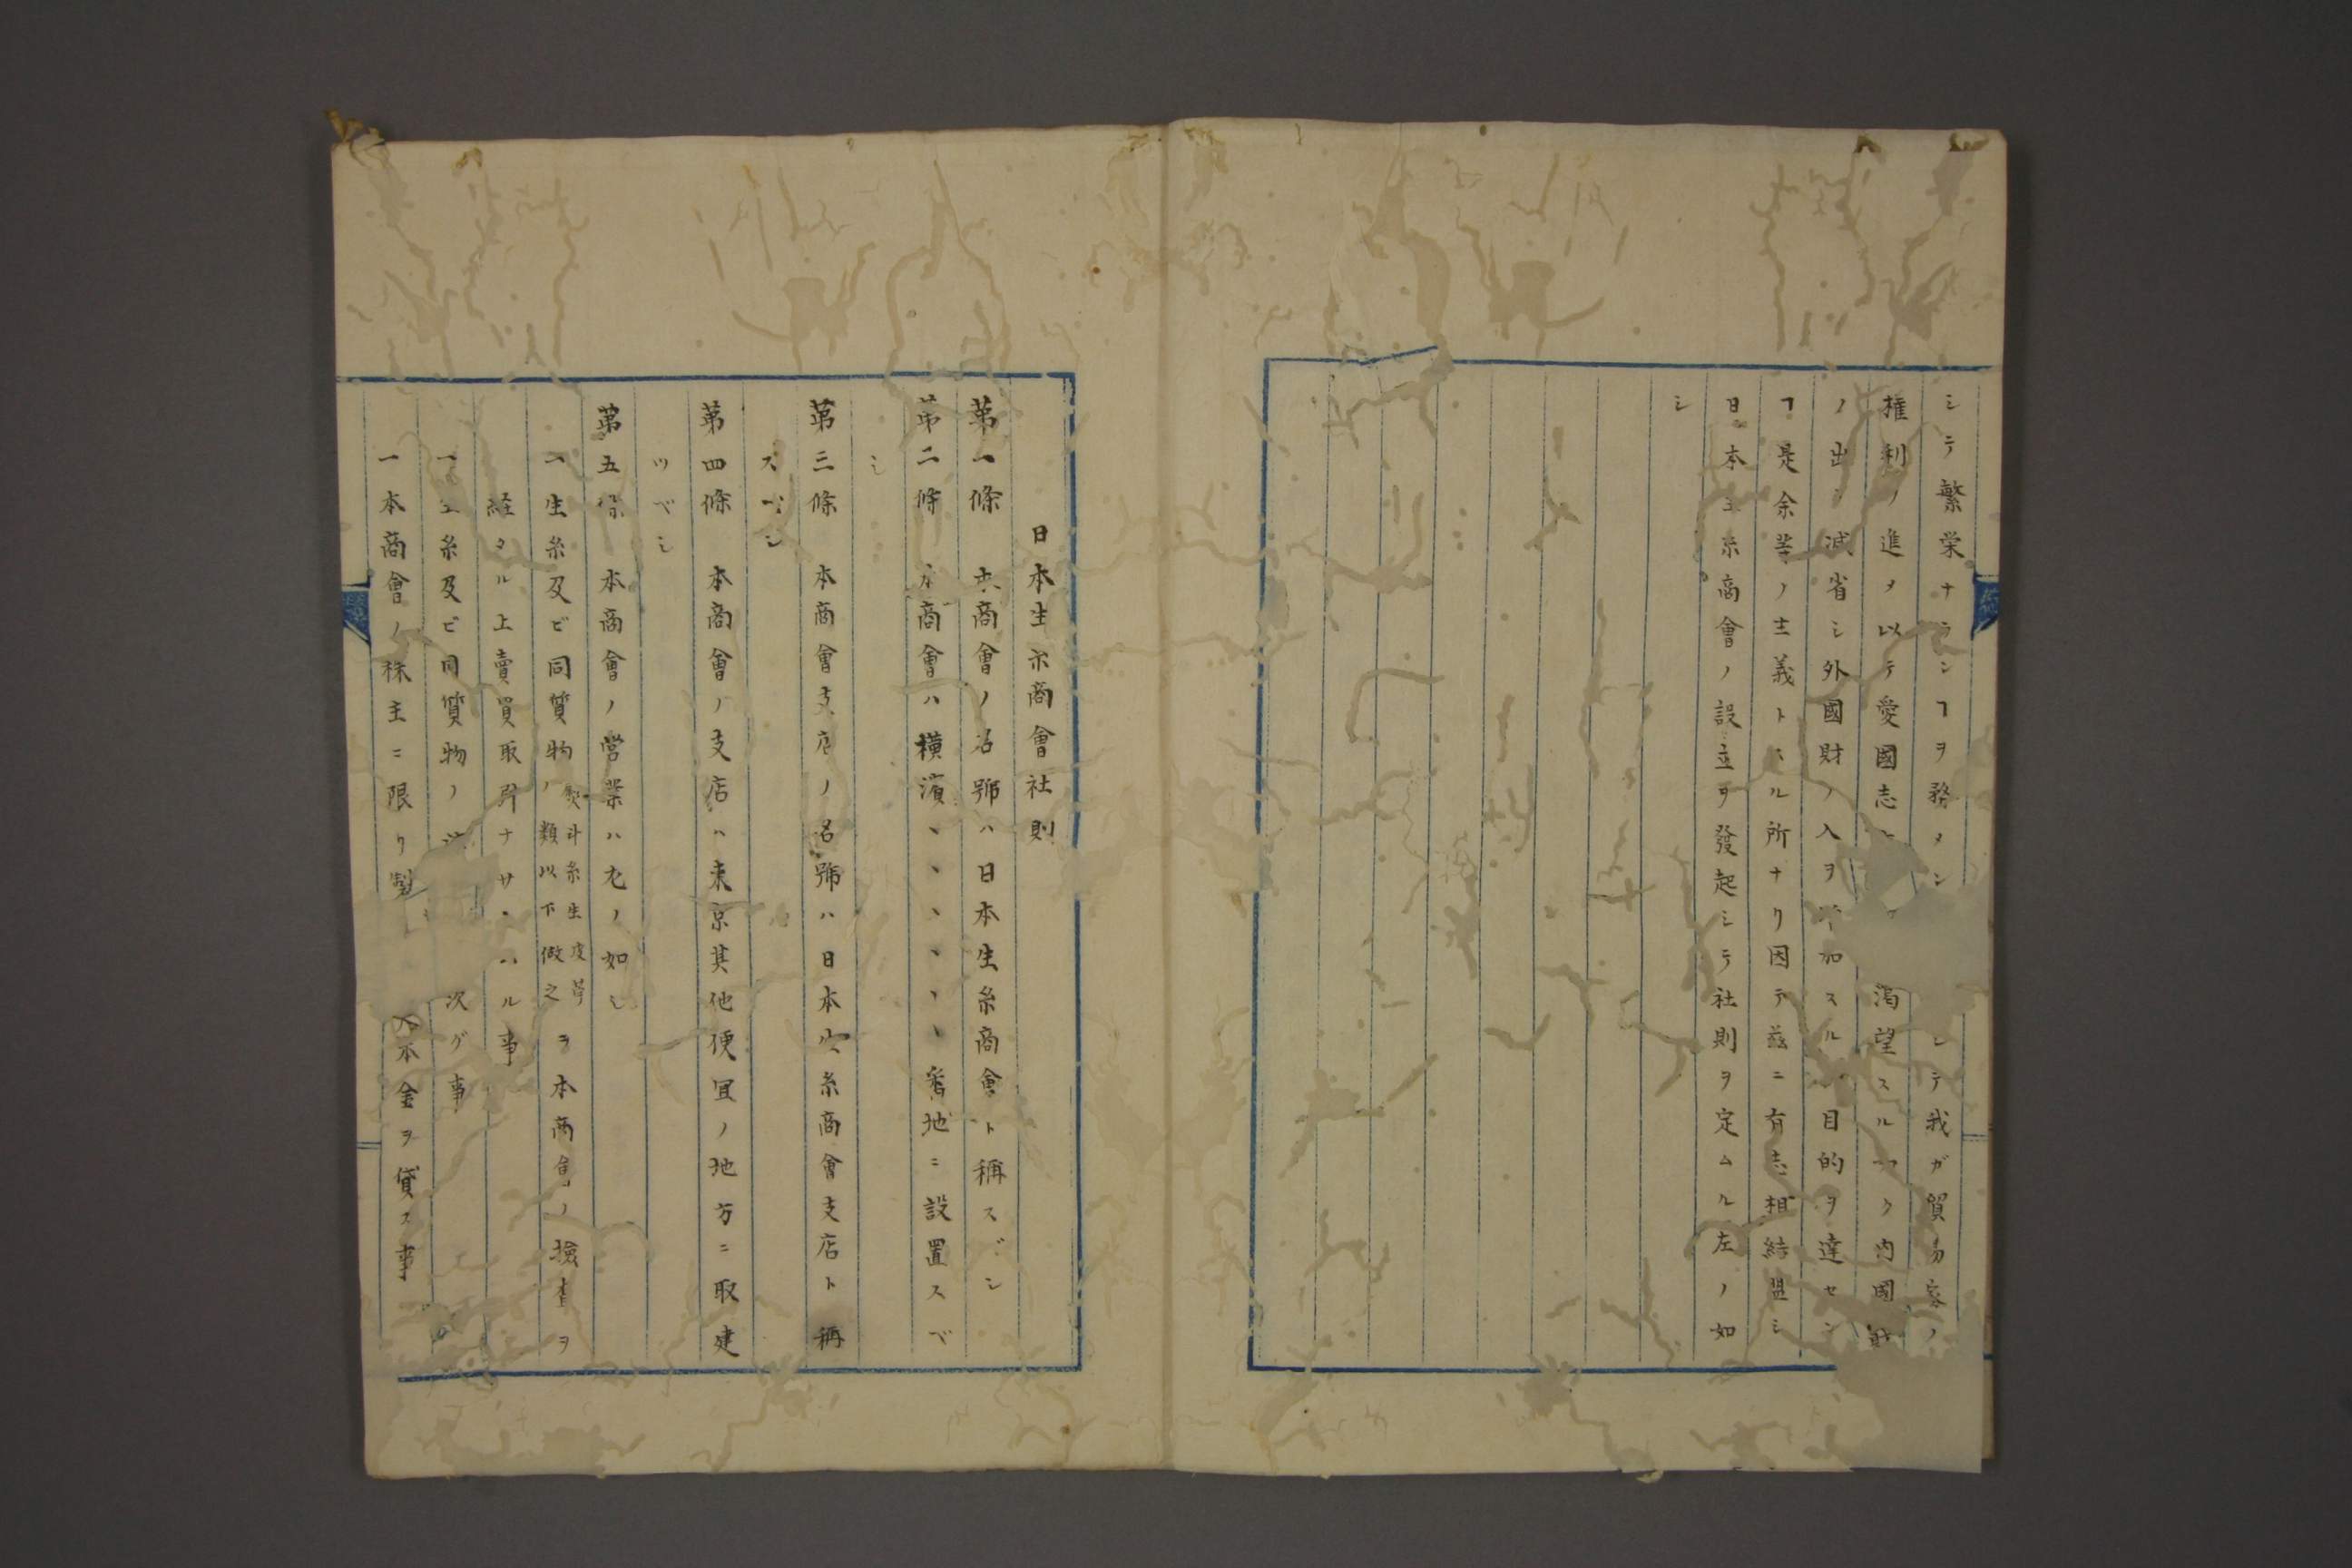 シテ繁栄ナランヿヲ務メン シテ我ガ貿易家ノ
権利ノ進メ以テ愛國志 渇望スル 内國
ノ出ヲ減省シ外國財ノ入ヲ 加スル 目的ヲ達セン
ヿ是余等ノ主義トスル所ナリ因テ茲ニ有志相結盟シ
日本生糸商會ノ設立ヲ發起シテ社則ヲ定ムル左ノ如
シ
日本生糸商會社則
第一條 本商會ノ名號ハ日本生糸商會ト稱スベシ
第二條 本商會ハ横濱、、、、、、番地ニ設置スベ
シ
第三條 本商會支店ノ名號ハ日本生糸商會支店ト稱
スベシ
第四條 本商會ノ支店ハ東京其他便宜ノ地方ニ取建
ツベシ
第五條 本商會ノ営業ハ左ノ如シ
一生糸及ビ同質物 熨斗糸生皮苧ノ類以下倣之 ヲ本商會ノ撿査ヲ
経タル上賣買取引ナサ ル事
一生糸及ビ同質物ノ 次グ事
一本商會ノ株主ニ限リ製 本金ヲ貸ス事